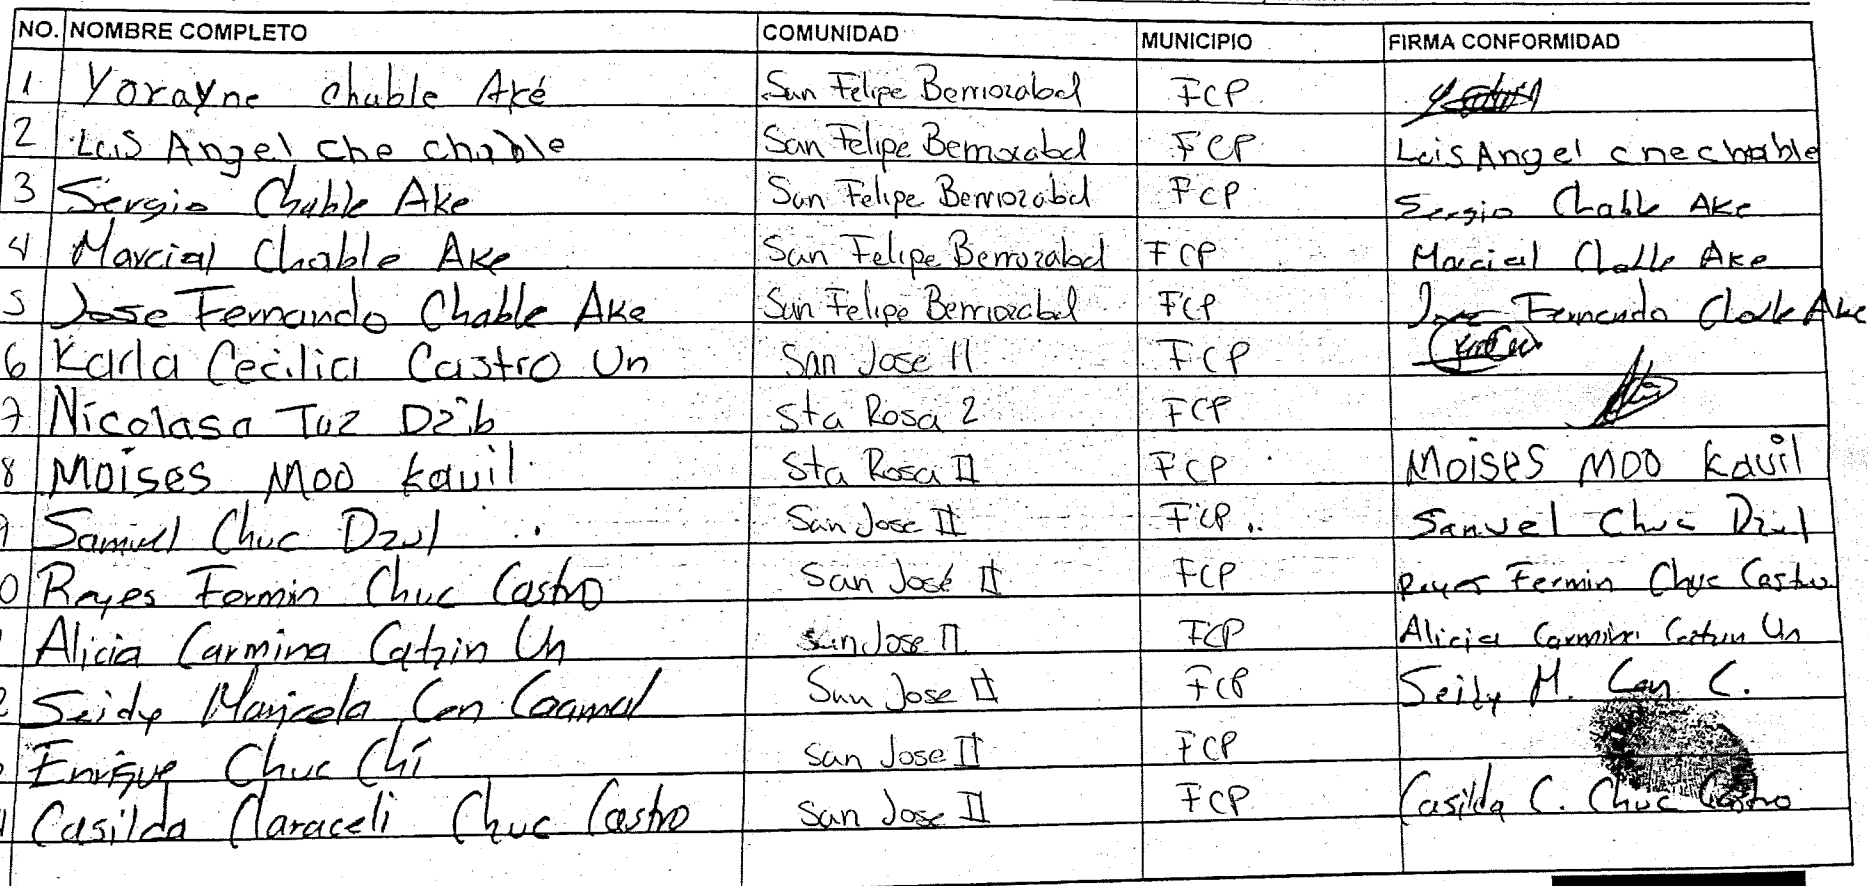 NO. NOMBRE COMPLETO COMUNIDAD MUNICIPIO FIRMA CONFORMIDAD
1 Yorayne Chable Aké San Felipe Berriozabal FCP
2 Luis Angel che chable San Felipe Berriozabal FCP Luis Angel che chable
3 Sergio Chable Ake San Felipe Berriozabal FCP Sergio Chable Ake
4 Marcial Chable Ake San Felipe Berriozabal FCP Marcial Chable Ake
5 Jose Fernando Chable Ake San Felipe Berriozabal FCP Jose Fernando Chable Ake
6 Karla Cecilia Castro Un San Jose II FCP
7 Nicolasa Tuz Dzib Sta Rosa 2 FCP
8 Moises Moo Kauil Sta Rosa II FCP Moises Moo Kauil
Samuel Chuc Dzul San Jose II FCP Samuel Chuc Dzul
0 Reyes Fermin Chuc Castro San José II FCP Reyes Fermin Chuc Castro
Alicia Carmina Catzin Un San Jose II FCP Alicia Carmina Catzin Un
2 Seidy Maricela Can Caamal San Jose II FCP Seidy M. Can C.
Enrique Chuc Chí San Jose II FCP
Casilda Claraceli Chuc Castro San Jose II FCP Casilda C. Chuc Castro